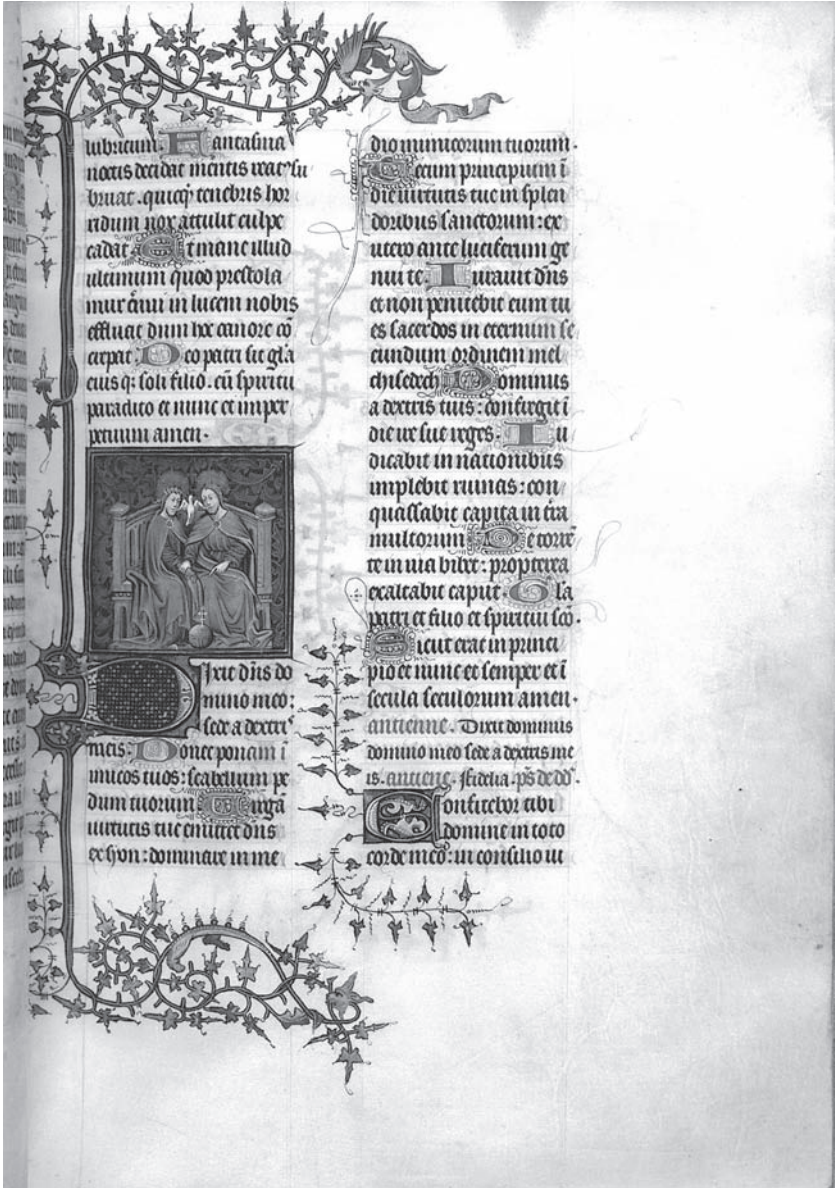 lubricum. Fantasma
noctis decidat mentis reatꝰ su
bruat. quicqꝫ tenebris hor
ridum nox attulit culpe
cadat Et mane illud
ultimum quod prestola
mur cernui in lucem nobis
effluat dum hoc canore cō
crepat. Deo patri sit gl̄a
eiusqꝫ soli filio. cū spiritu
paraclito et nunc et in per
petuum amen.
Dixit dn̄s do
mino meo:
sede a dextris
meis. Donec ponam ī
imicos tuos: scabellum pe
dum tuorum Virgā
uirtutis tue emittet dn̄s
ex syon: dominare in me
dio inimicorum tuorum.
Tecum principium ī
die uirtutis tue in splen
doribus sanctorum: ex
utero ante luciferum ge
nui te. Iurauit dn̄s
et non penitebit eum tu
es sacerdos in eternum se
cundum ordinem mel
chisedech Dominus
a dextris tuis: confregit ī
die ire sue reges. Iu
dicabit in nationibus
implebit ruinas: con
quassabit capita in t̄ra
multorum De torrē
te in uia bibet: propterea
exaltabit caput. Gl̄a
patri et filio et spiritui sc̄o.
Sicut erat in princi
pio et nunc et semper et ī
secula seculorum amen.
antienne. Dixit dominus
domino meo sede a dextris me
is. antiene. Fidelia. p̄s de dd̄.
Confitebor tibi
domine in toto
corde meo: in consilio iu